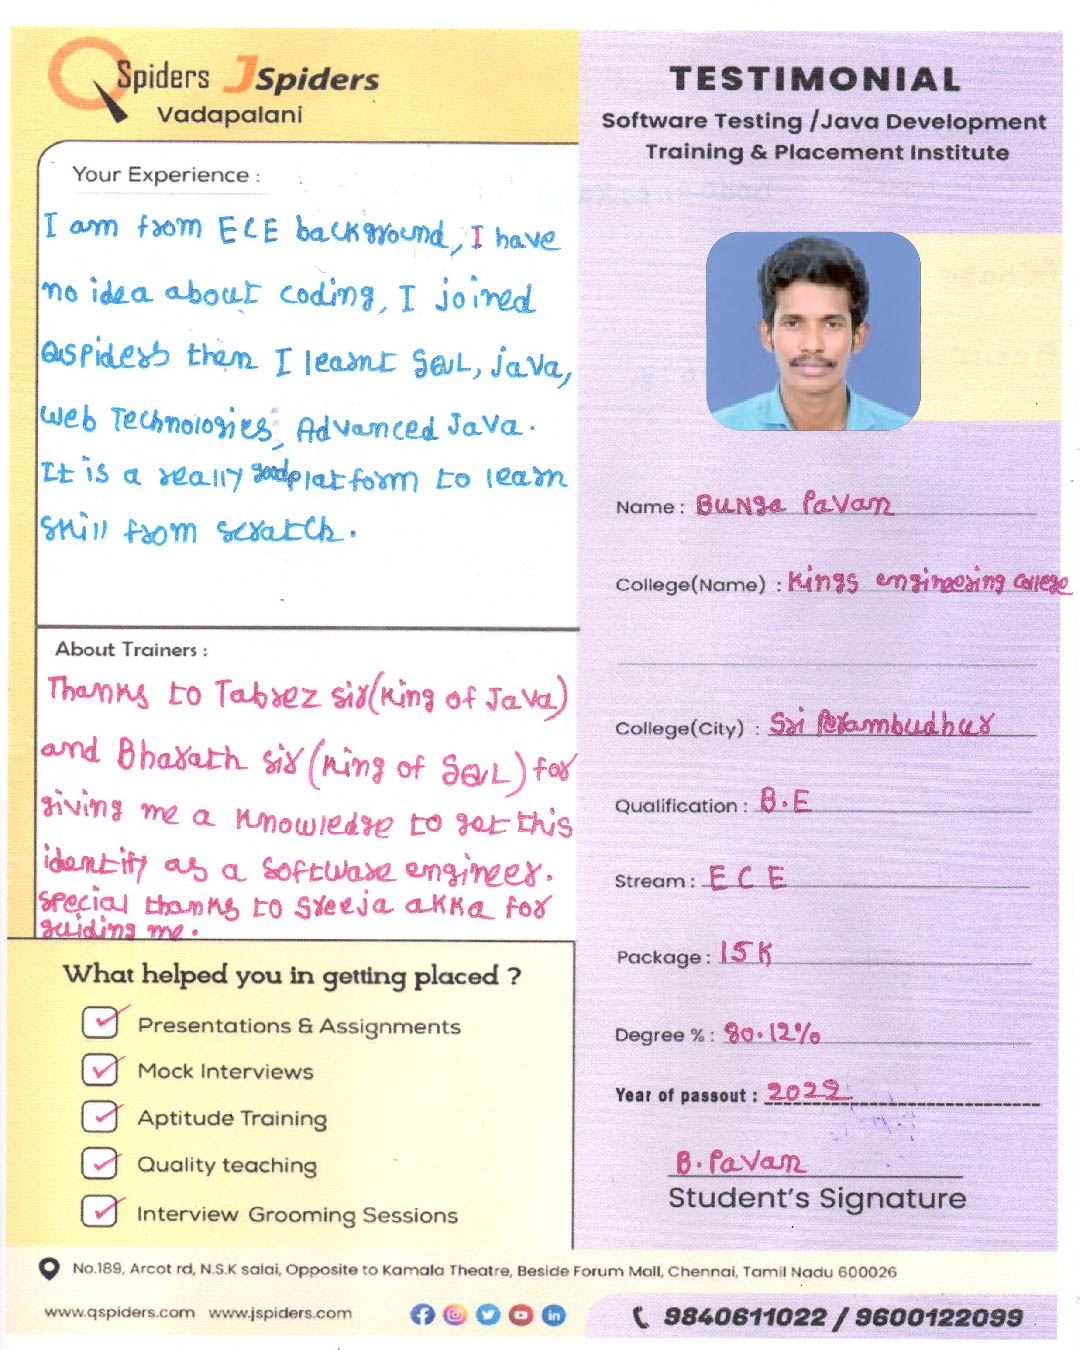 QSpiders JSpiders
Vadapalani
Your Experience :
I am from ECE background, I have
no idea about coding, I joined
Qspiders then I learnt SQL, java,
web Technologies, Advanced Java.
It is a really good platform to learn
skill from scratch.
About Trainers :
Thanks to Tabrez sir(King of Java)
and Bharath sir (King of SQL) for
giving me a knowledge to get this
identity as a software engineer.
special thanks to Sreeja akka for
guiding me.
What helped you in getting placed ?
Presentations & Assignments
Mock Interviews
Aptitude Training
Quality teaching
Interview Grooming Sessions
TESTIMONIAL
Software Testing /Java Development
Training & Placement Institute
Name : Bunga Pavan
College(Name) : Kings engineering college
College(City) : Sri Perambudhur
Qualification : B.E
Stream : E C E
Package : 15K
Degree % : 80.12%
Year of passout : 2022
B.Pavan
Student's Signature
No.189, Arcot rd, N.S.K salai, Opposite to Kamala Theatre, Beside Forum Mall, Chennai, Tamil Nadu 600026
www.qspiders.com www.jspiders.com
9840611022 / 9600122099